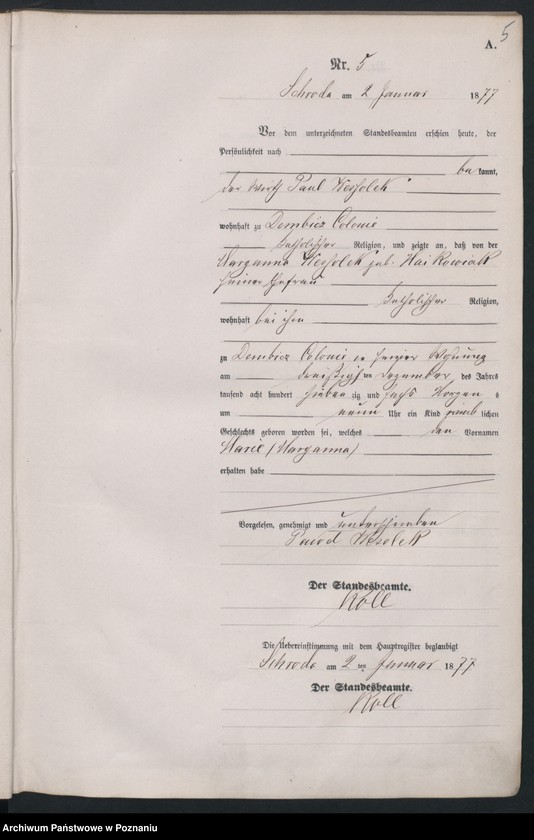 5
A.
Nr. 5
Schroda am 2 Januar 1877
Vor dem unterzeichneten Standesbeamten erschien heute, der
Persönlichkeit nach
bekannt,
der Wirth Paul Wessolek
wohnhaft zu Dembicz Colonie
katholischer Religion, und zeigte an, daß von der
Maryanna Wessolek geb. Maikowiak
seiner Ehefrau
katholischer Religion,
wohnhaft bei ihm
zu Dembicz Colonie in seiner Wohnung
am dreißigsten Dezember des Jahres
tausend acht hundert siebenzig und sechs Morgens
um neun Uhr ein Kind weiblichen
Geschlechts geboren worden sei, welches den Vornamen
Marie (Maryanna)
erhalten habe
Vorgelesen, genehmigt und unterschrieben
Wesolek
Der Standesbeamte.
Roll
Die Uebereinstimmung mit dem Hauptregister beglaubigt
Schroda am 2ten Januar 1877
Der Standesbeamte.
Roll
Archiwum Państwowe w Poznaniu